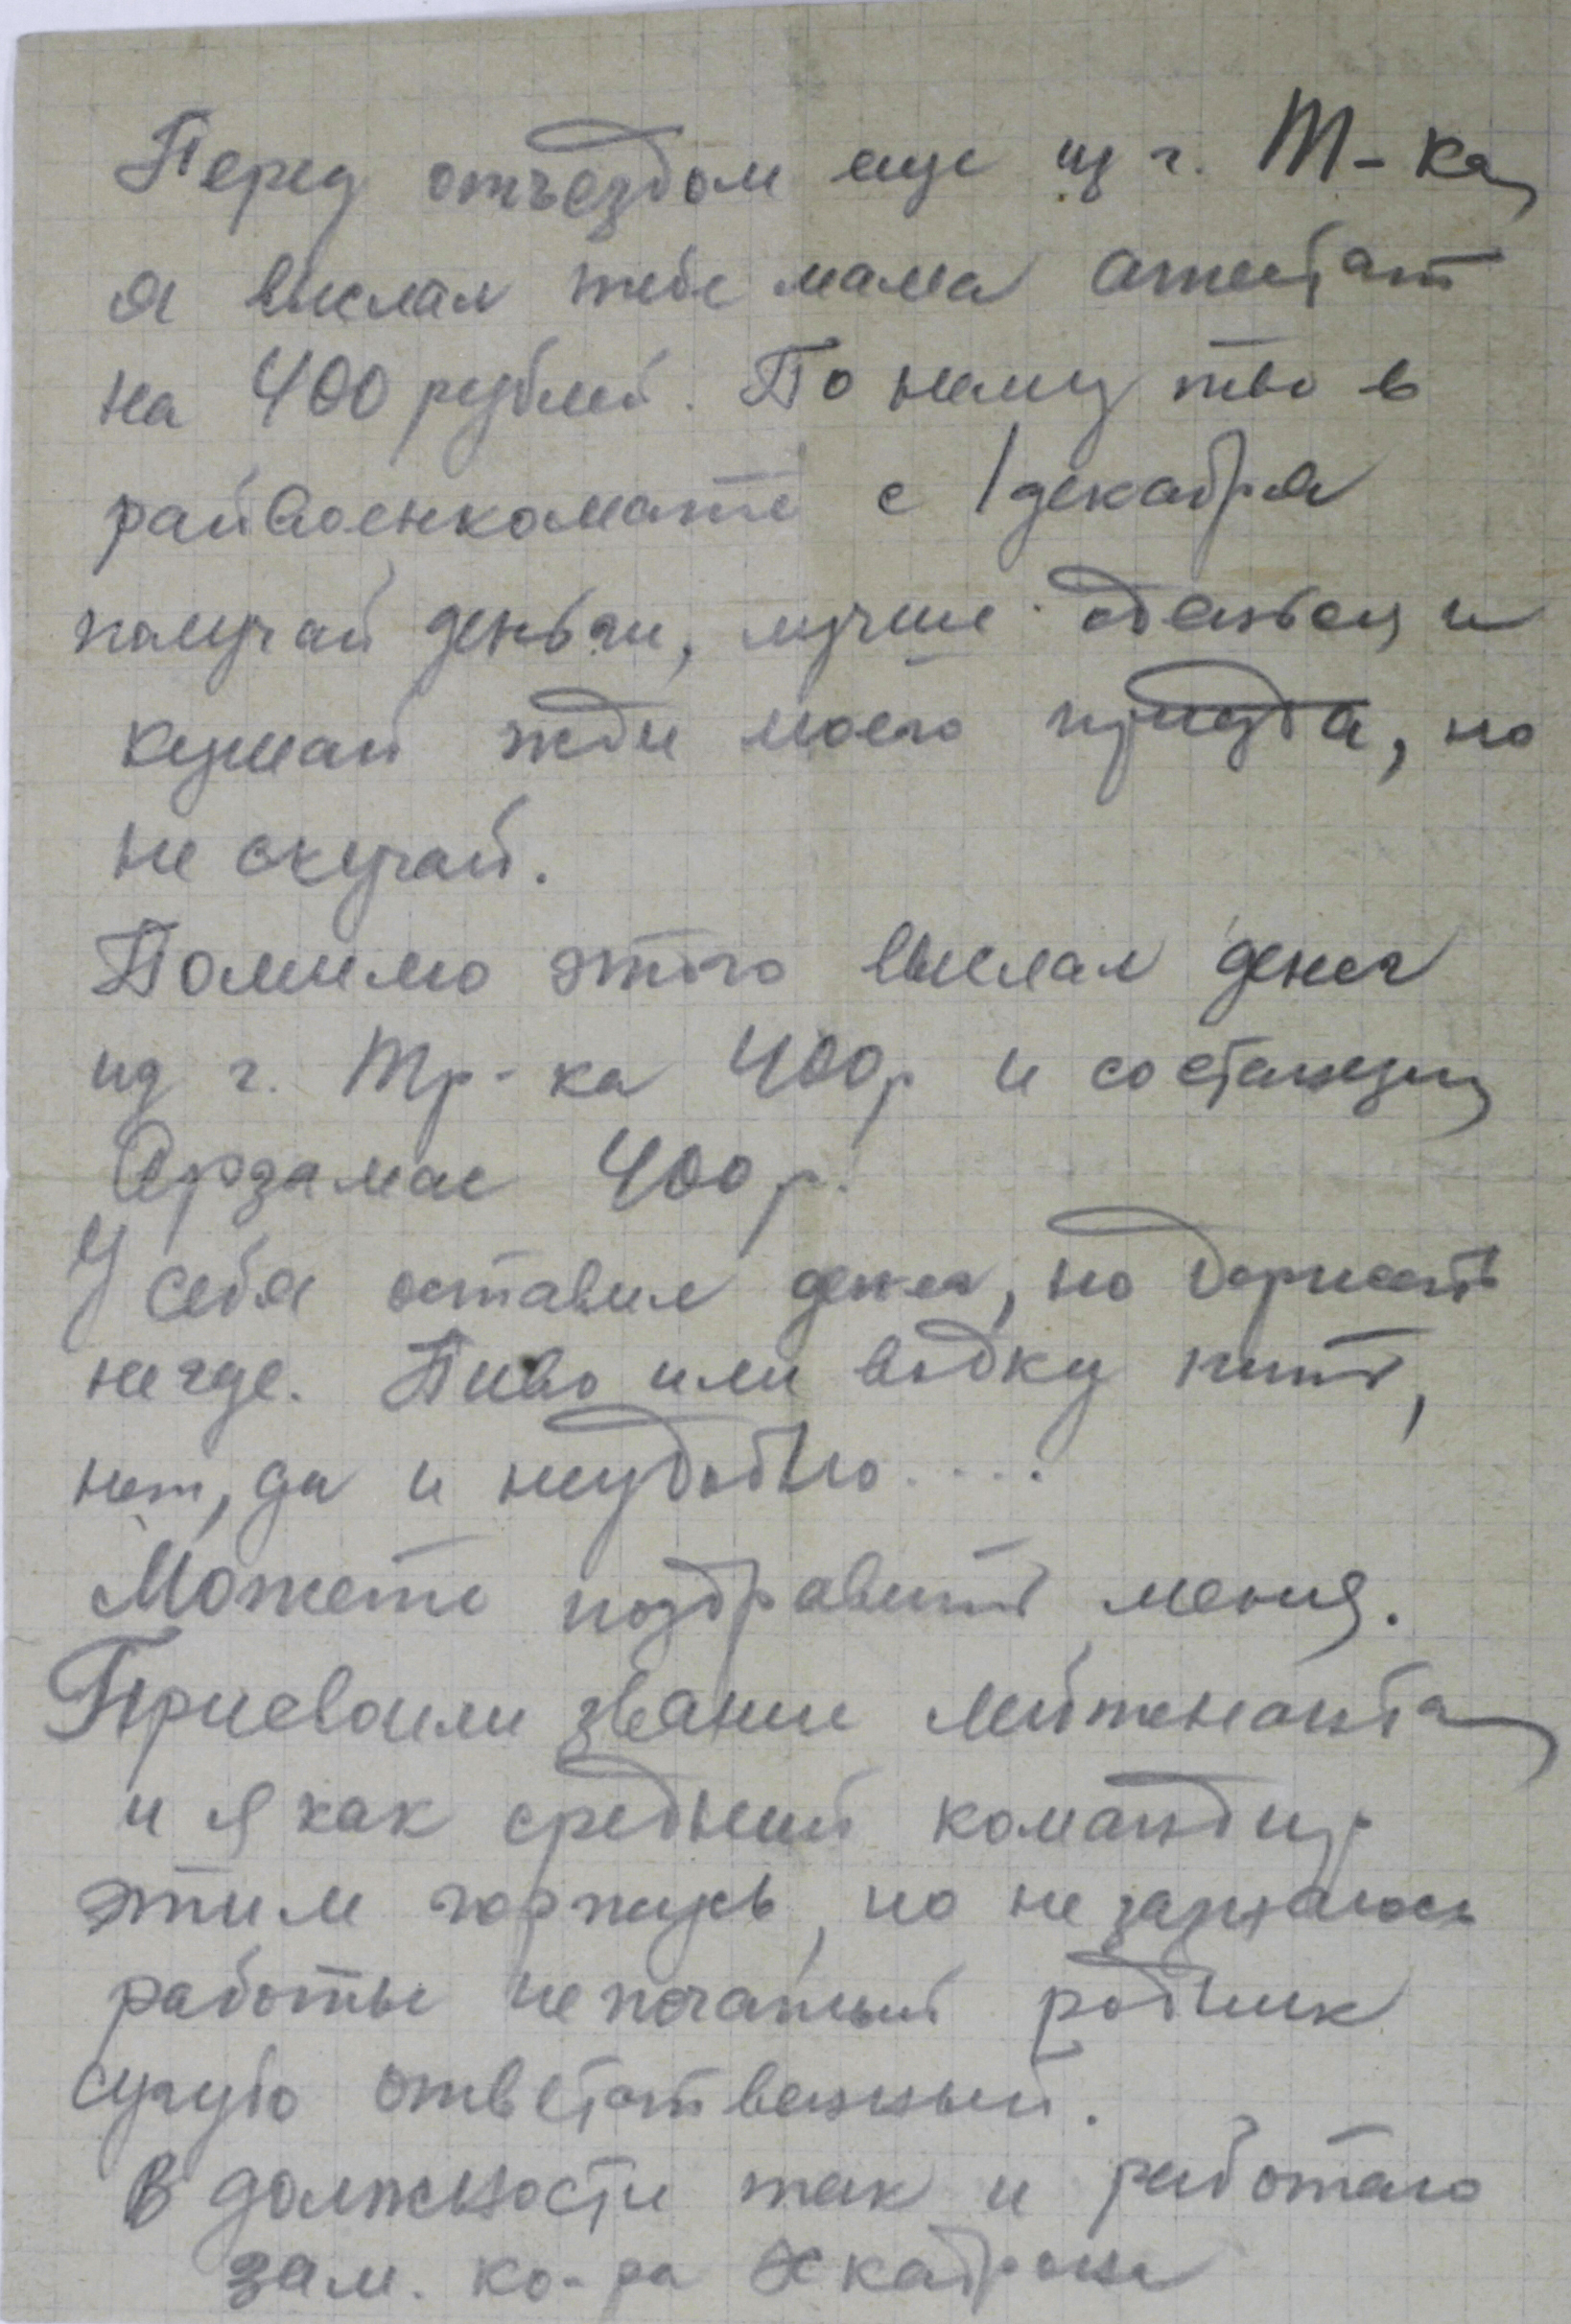 Перед отъездом еще из г. Т-ка
я выслал тебе мама аттестат
на 400 рублей. По нему ты в
райвоенкомате с 1 декабря
получай деньги, лучше оденься и
кушай жди моего приезда, но
не скучай.
Помимо этого выслал денег
из г. Тр-ка 400р и со станции
Арзамас 400р.
У себя оставил денег, но держать
негде. Пиво или водку пить,
нет, да и неудобно....
Можете поздравить меня.
Присвоили звание лейтенанта
и я как средний командир
этим горжусь, но не зазнаюсь
работы непочатый родник
сугубо ответственный.
В должности так и работаю
зам. ко-ра эскадрона